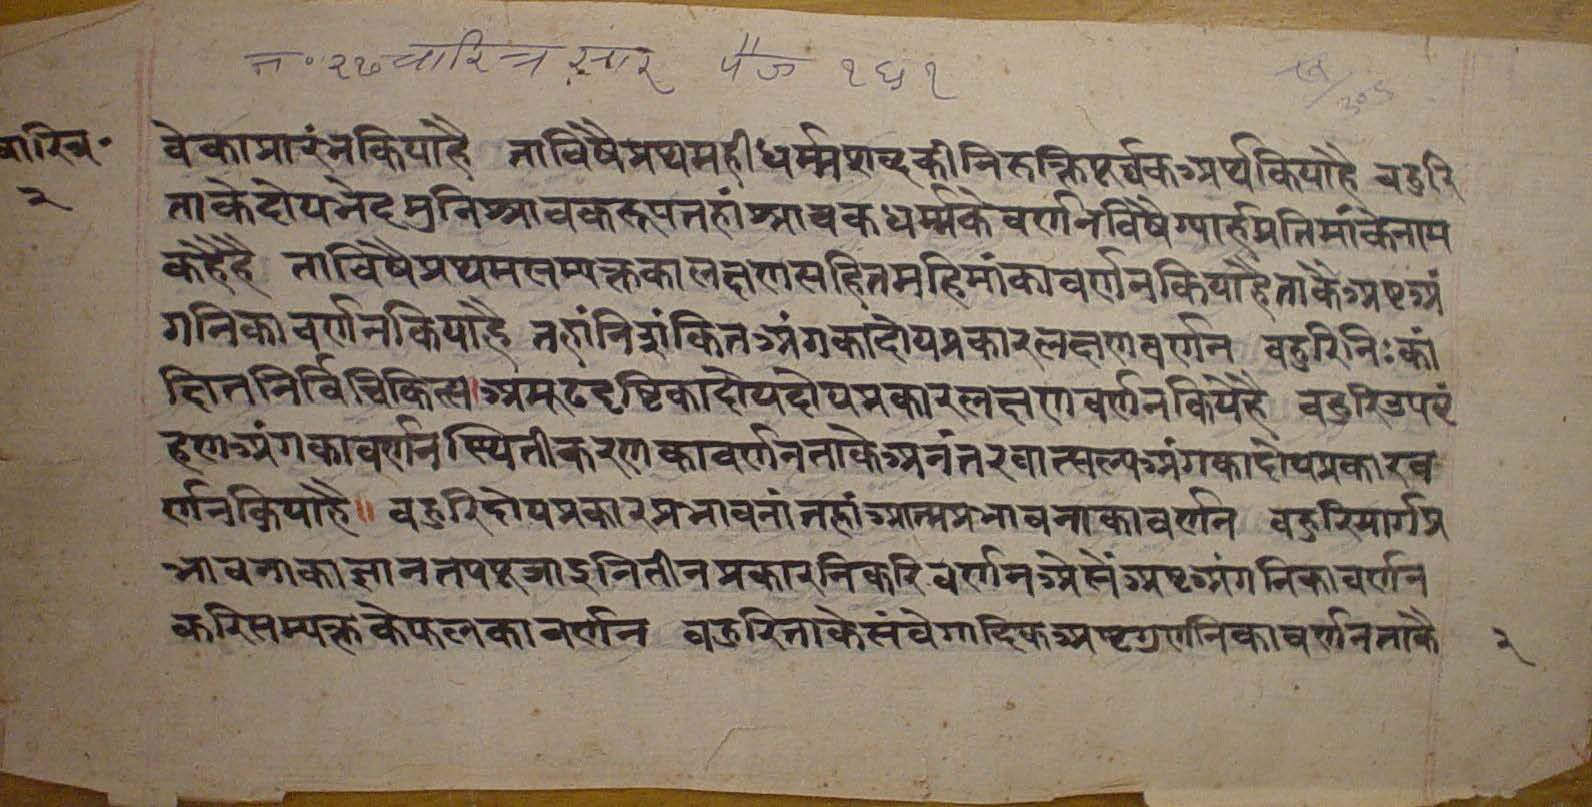 न॰ २७ चारित्र सार पैज १६१
चारित्र॰
२
वेकाप्रारंभकियाहै ताविषैप्रथमहीधर्म्मशब्दकीनिरुक्तिपूर्वकअर्थकियाहै बहुरि
ताकेदोयभेदमुनिश्रावकरूपतहांश्रावकधर्म्मकेवर्णनविषैग्यारहप्रतिमांकेनाम
कहैहै ताविषैप्रथमसम्यक्तकालक्षणसहितमहिमांकावर्णनकियाहैताकेअष्टअं
गनिकावर्णनकियाहै तहांनिशंकितअंगकादोयप्रकारलक्षणवर्णन बहुरिनिःकां
क्षितनिर्विचिकित्साअमूढदृष्टिकादोयदोयप्रकारलक्षणवर्णनकियेहै बहुरिउपबृं
हणअंगकावर्णनस्थितीकरणकावर्णनताकेअनंतरवात्सल्यअंगकादोयप्रकारव
र्णनकियाहै॥ बहुरिदोयप्रकारप्रभावनांतहांआत्मप्रभावनाकावर्णन बहुरिमार्गप्र
भावनाकाज्ञानतपपूजाइनितीनप्रकारनिकरिवर्णनअैसेंअष्टअंगनिकावर्णन
करिसम्यक्तकेफलकावर्णन बहुरिताकेसंवेगादिकअष्टगुणनिकावर्णनताकै
२